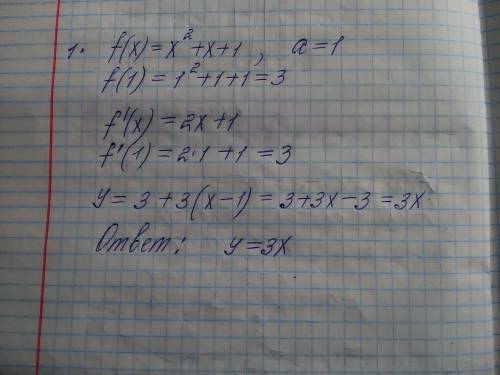 1. f(x) = x² + x + 1, a = 1
f(1) = 1² + 1 + 1 = 3
f'(x) = 2x + 1
f'(1) = 2·1 + 1 = 3
y = 3 + 3(x - 1) = 3 + 3x - 3 = 3x
Ответ: y = 3x